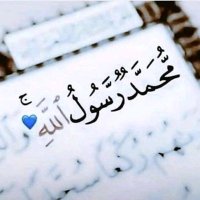 ج
مُّحَمَّدٌ رَّسُولُ ٱللَّهِ